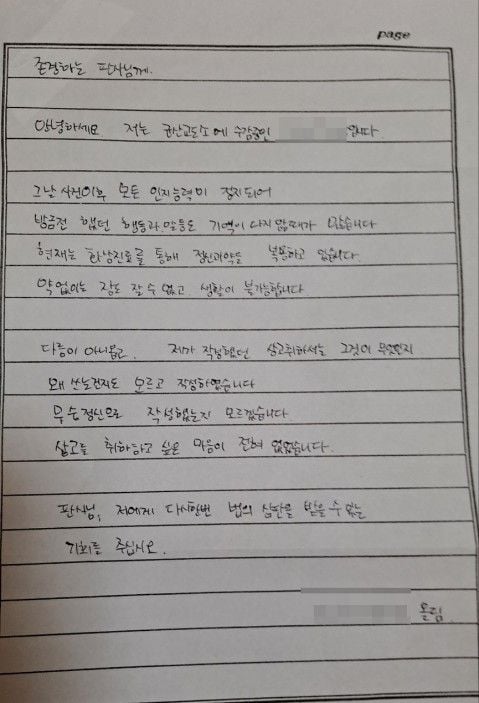 page
존경하는 판사님께.
안녕하세요 저는 군산교도소에 수감중인 입니다.
그날 사건이후 모든 인지능력이 정지되어
방금전 했던 행동과 말들도 기억이 다지 않을때가 많습니다
현재는 화상진료를 통해 정신과약을 복용하고 있습니다.
약 없이는 잠도 잘 수 없고. 생활이 불가능합니다
다름이 아니옵고. 제가 작성했던 상고취하서는 그것이 무엇인지
왜 쓰는건지도 모르고 작성하였습니다
무슨정신으로 작성했는지 모르겠습니다.
상고를 취하하고 싶은 마음이 전혀 없었습니다.
판사님, 저에게 다시한번 법의 심판을 받을 수 있는
기회를 주십시오.
올림.